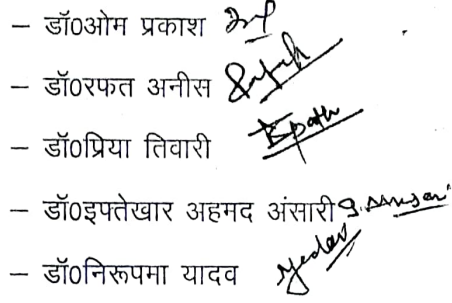 – डॉ0ओम प्रकाश
– डॉ0रफत अनीस
– डॉ0प्रिया तिवारी
– डॉ0इफ्तेखार अहमद अंसारी
– डॉ0निरूपमा यादव Yadav